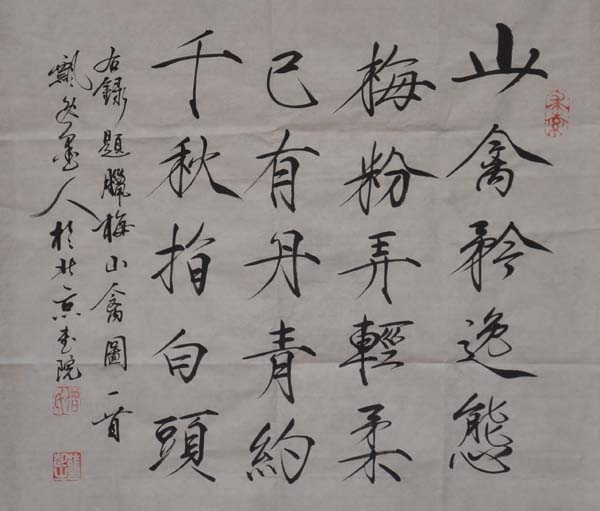 山禽矜逸態
梅粉弄輕柔
已有丹青約
千秋指白頭
右録題臘梅山禽圖一首
飄逸墨人於北京畫院